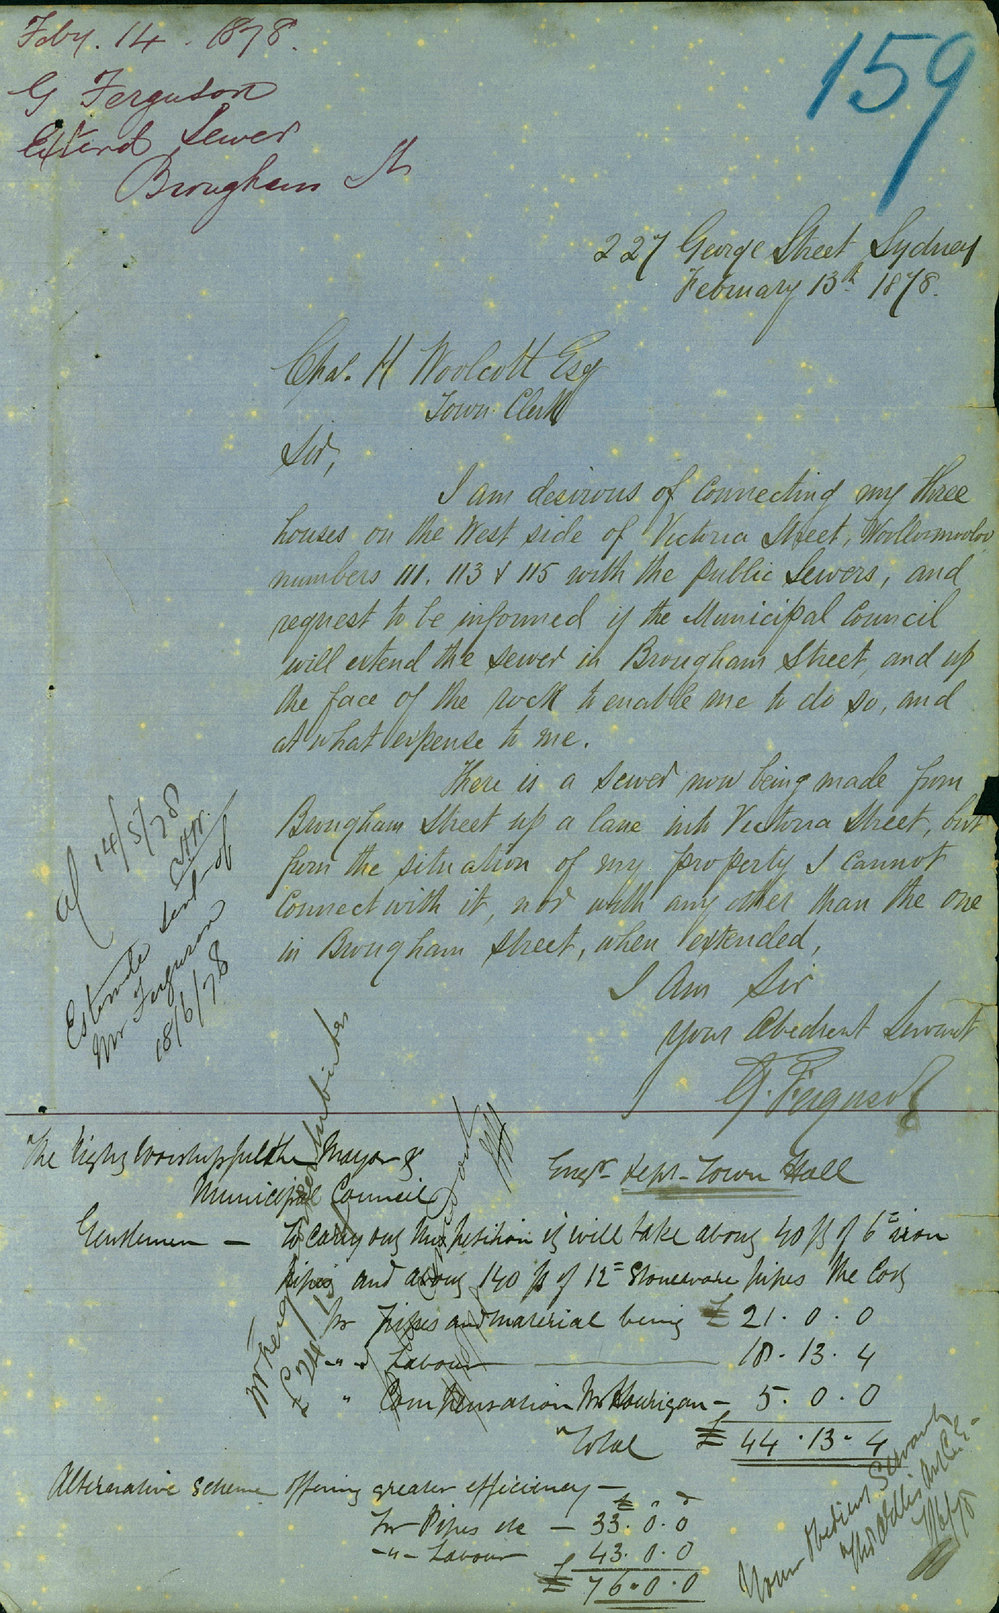 Feby. 14. 1878.
G Ferguson
Extend Sewer
Brougham St
159
227 George Street Sydney
February 13th 1878.
Chas. H Woolcott Esq
Town Clerk
Sir,
I am desirous of connecting my three
houses on the West side of Victoria Street, Woolloomooloo
numbers 111. 113 & 115 with the public Sewers, and
request to be informed if the Municipal Council
will extend the sewer in Brougham Street, and up
the face of the rock to enable me to do so, and
at what expense to me.
There is a sewer now being made from
Brougham Street up a lane into Victoria Street, but
from the situation of my property I cannot
connect with it, nor with any other than the one
in Brougham Street, when extended,
I Am Sir
Your Obedient Servant
G. Ferguson
14/5/78
Estimate sent of
Mr Ferguson
18/6/78
The Right Worshipful the Mayor &
Municipal Council
Engrs Dept. Town Hall
Gentlemen — To carry out this petition it will take about 40 ft of 6" iron
pipes and about 140 ft of 12" Stoneware pipes the Cost
for pipes and material being £ 21. 0. 0
" " Labour — 18. 13. 4
" Compensation Mr Hourigan — 5. 0. 0
Total £ 44. 13. 4
Alternative scheme offering greater efficiency —
For Pipes etc — 33. 0. 0
-"- Labour 43. 0. 0
£ 76. 0. 0
Mr Ferguson
£24/13
Your Obedient Servant